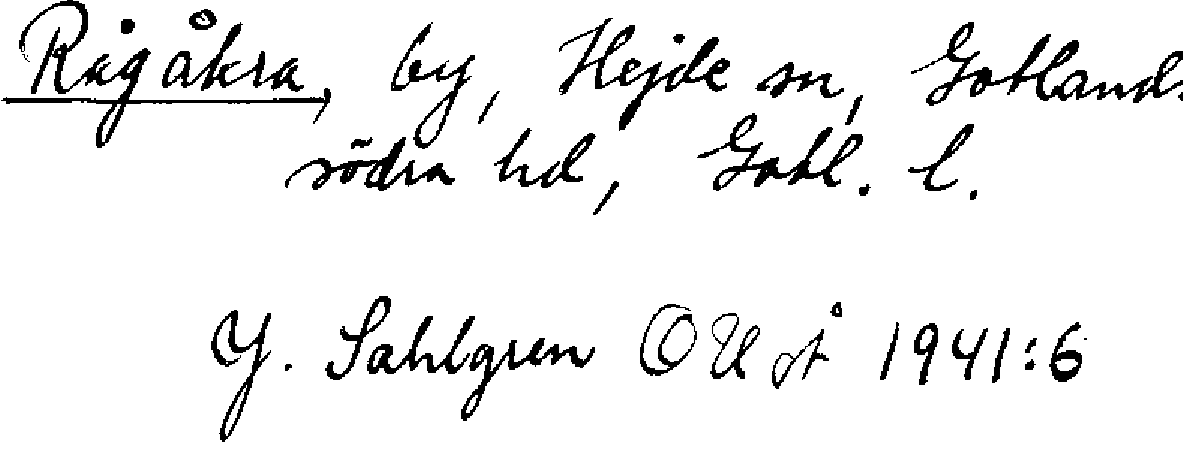 Rågåkra, by, Hejde sn, Gotlands
södra hd, Gotl. l.
J. Sahlgren OUÅ 1941:6